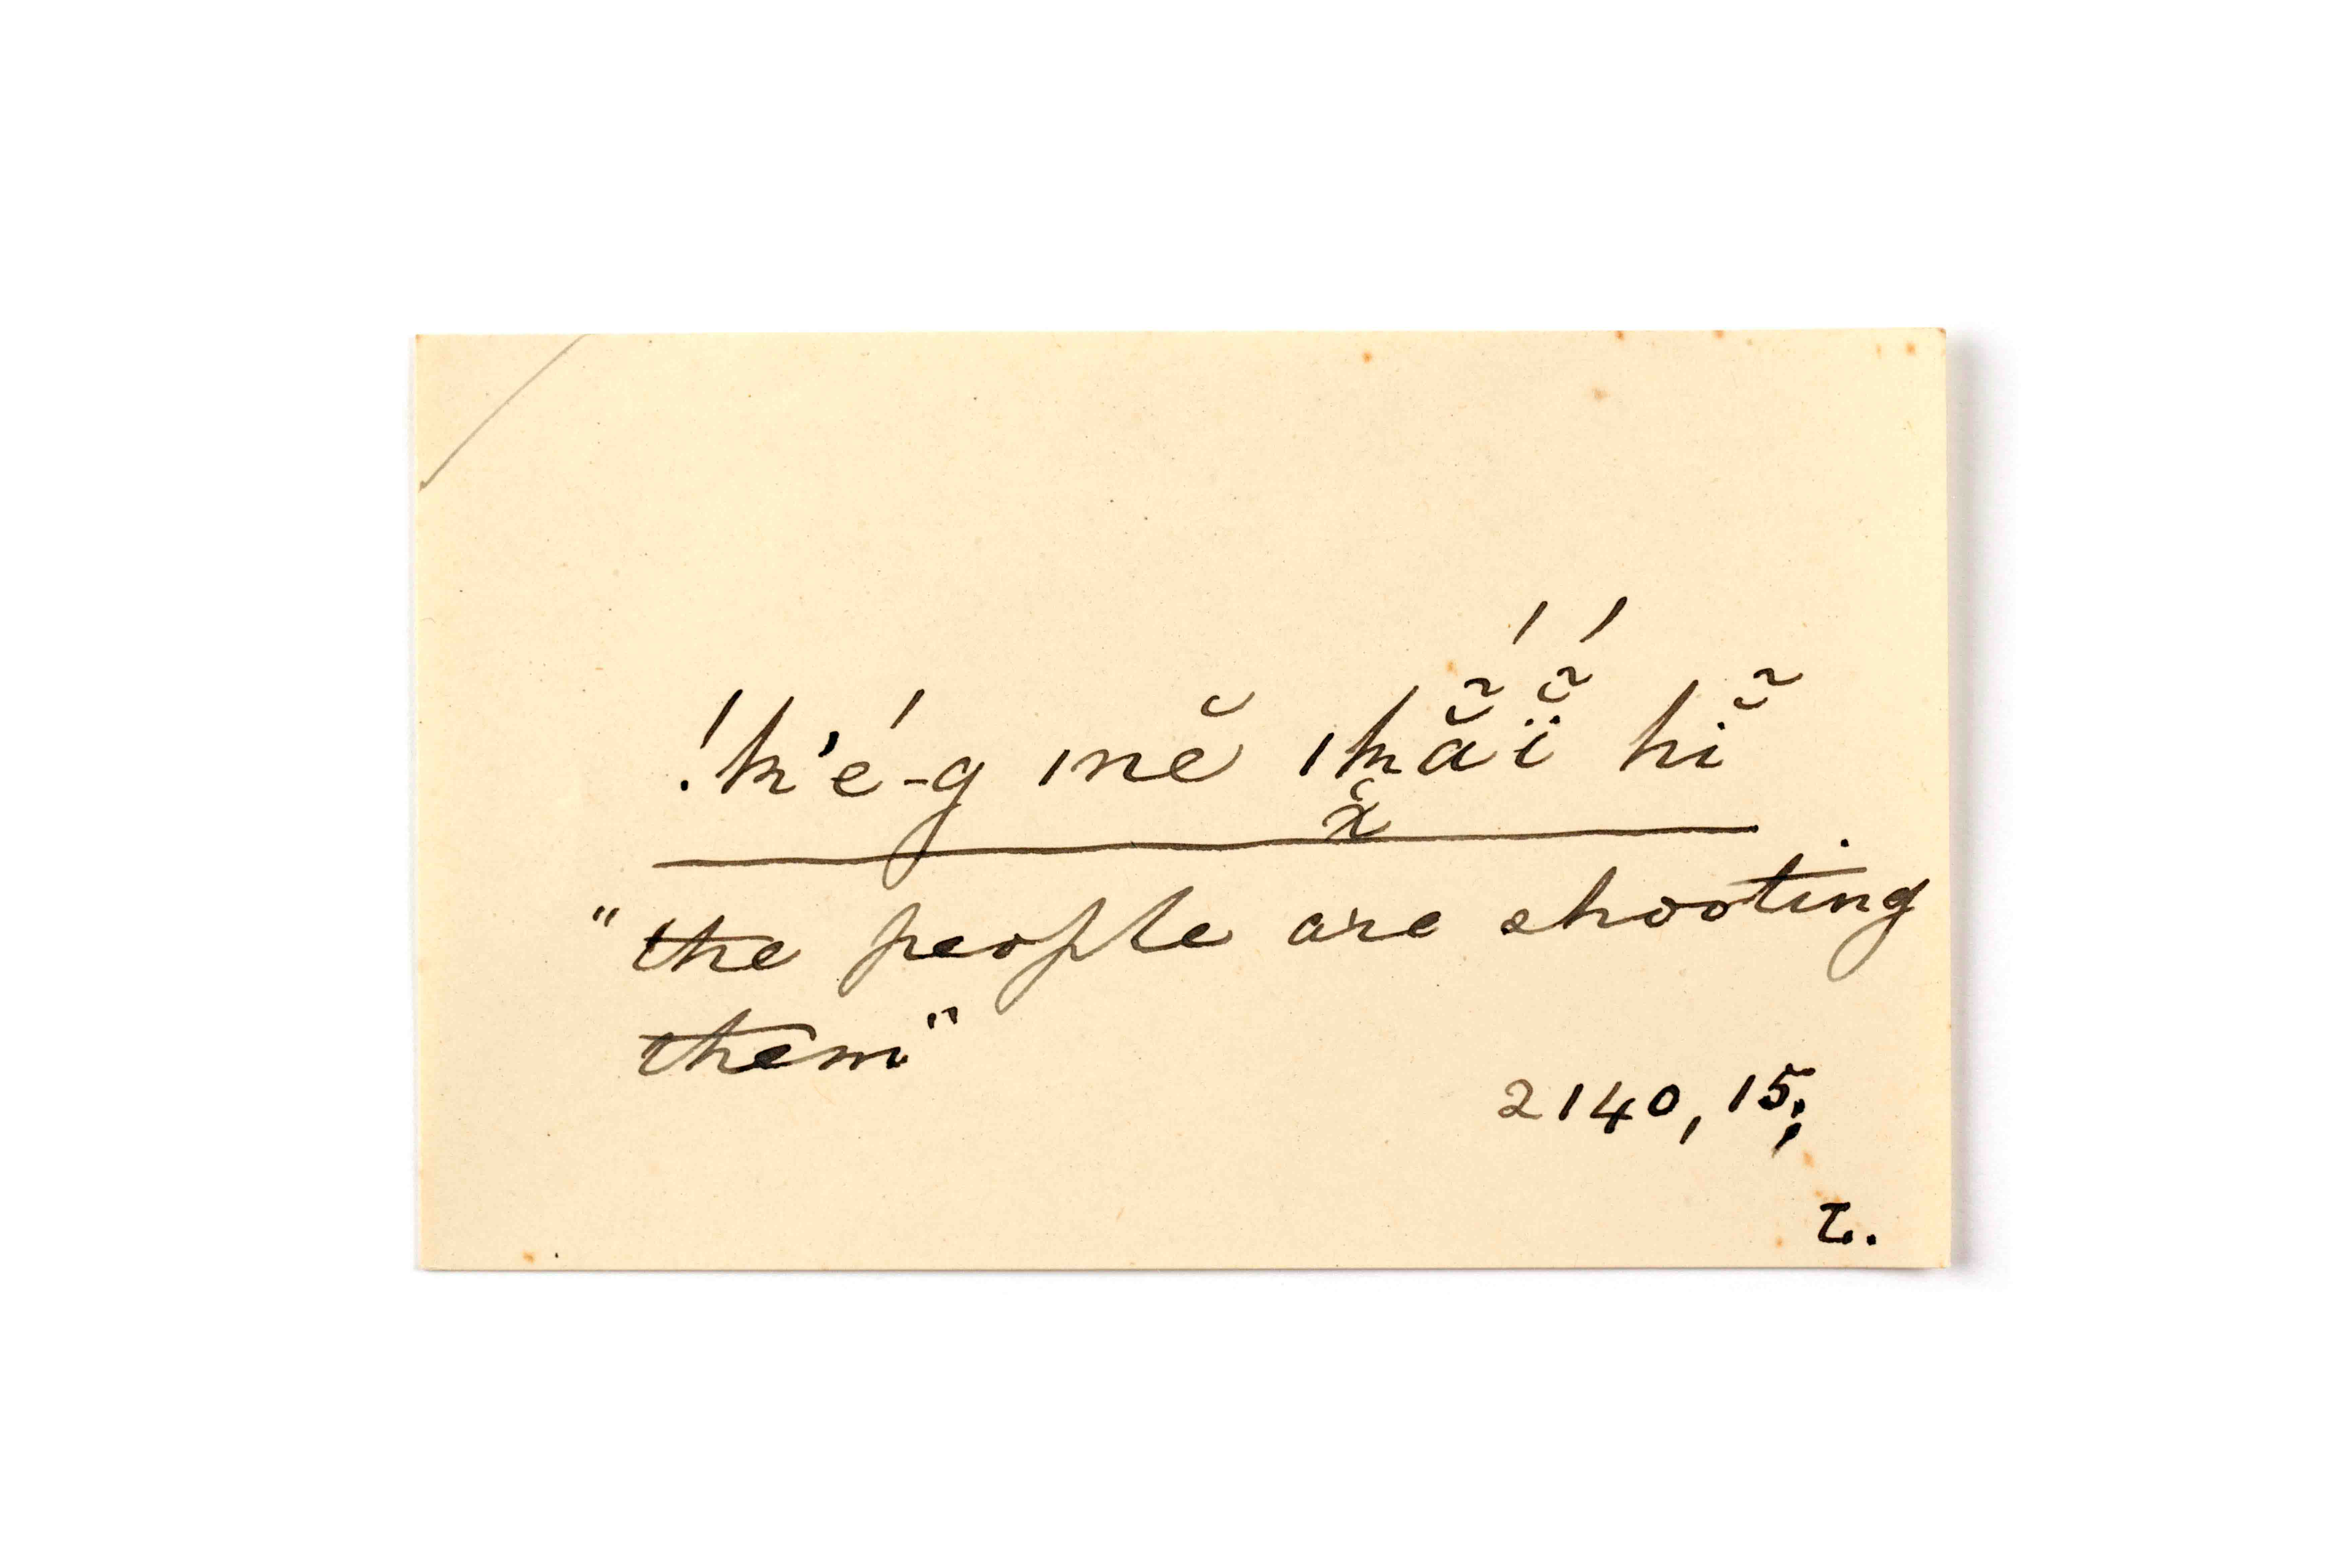 !k'é-g ǀnĕ ǀkx̆ã̆́ĩ̆́ hĩ̆
"the people are shooting
them"
2140, 15;
τ.